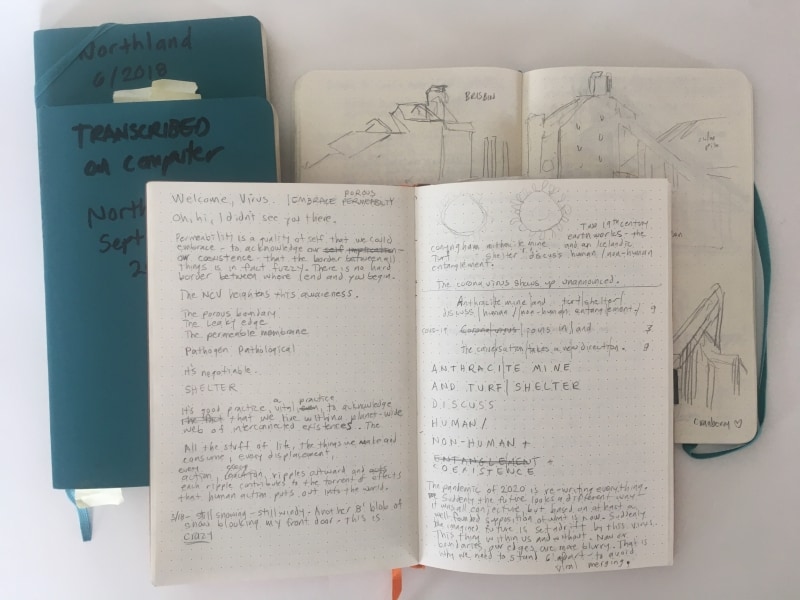 Northland
6/2018
TRANSCRIBED
on computer
North
Sept
2
BRISBIN
Cranberry ♡
Welcome, Virus. | EMBRACE POROUS PERMEABILITY
Oh, hi, I didn't see you there.
Permeability is a quality of self that we could
embrace - to acknowledge our self implication -
our coexistence - that the border between all
Things is in fact fuzzy. There is no hard
border between where I end and you begin.
The NCV heightens this awareness.
The porous boundary
The Leaky edge
The permeable membrane
Pathogen Pathological
it's negotiable.
SHELTER
It's good practice, a vital practice, to acknowledge
the fact that we live within a planet-wide
web of interconnected existences. The
All the stuff of life, the things we make and
consume, every displacement,
every action, ripples outward and
each ripple contributes to the torrent of effects
that human action puts out into the world.
3/18 - still snowing - still windy - Another 8' blob of
snow blocking my front door - This is
crazy
Two 19th century
earthworks - the
conyngham anthracite mine and an Icelandic
Turf shelter discuss human/non-human
entanglement.
The corona virus shows up unannounced.
Anthracite mine and turf shelter/
discuss/human/non-human entanglement/ 9
COVID-19 Corona virus/joins in/and 7
The conversation/takes a new direction. 9
ANTHRACITE MINE
AND TURF/SHELTER
DISCUSS
HUMAN/
NON-HUMAN +
ENTANGLEMENT +
COEXISTENCE
The pandemic of 2020 is re-writing everything.
Suddenly the future looks a different way -
it was all conjecture, but based on at least a
well founded supposition of what is now. Suddenly
the imagined future is set adrift by this virus.
This thing within us and without. Now our
boundaries, our edges are more blurry. That is
why we need to stand 6' apart - to avoid
viral merging.